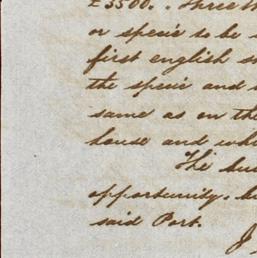 £3500.. Three
or specie to be
first english
the specie and
same as on the
house and
The
opportunity.
said Port.